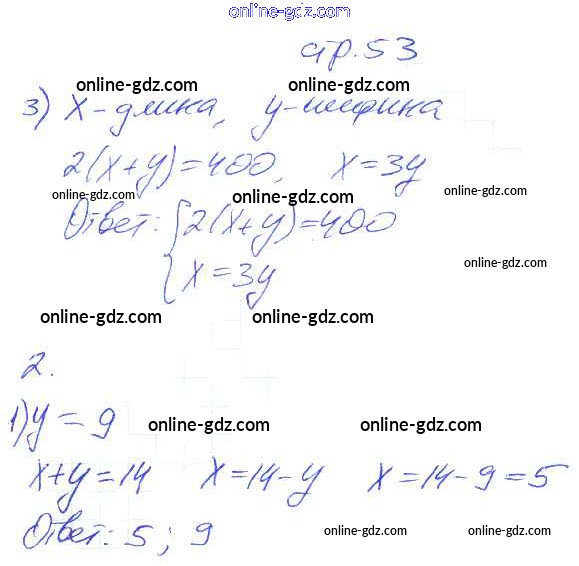 online-gdz.com
стр. 53
online-gdz.com online-gdz.com
3) x - длина, y - ширина
2(x+y)=400, x=3y
online-gdz.com online-gdz.com online-gdz.com
Ответ: { 2(x+y)=400
x=3y
online-gdz.com
online-gdz.com online-gdz.com
2.
1) y = 9
online-gdz.com online-gdz.com
x+y=14 x=14-y x=14-9=5
Ответ: 5; 9
online-gdz.com online-gdz.com